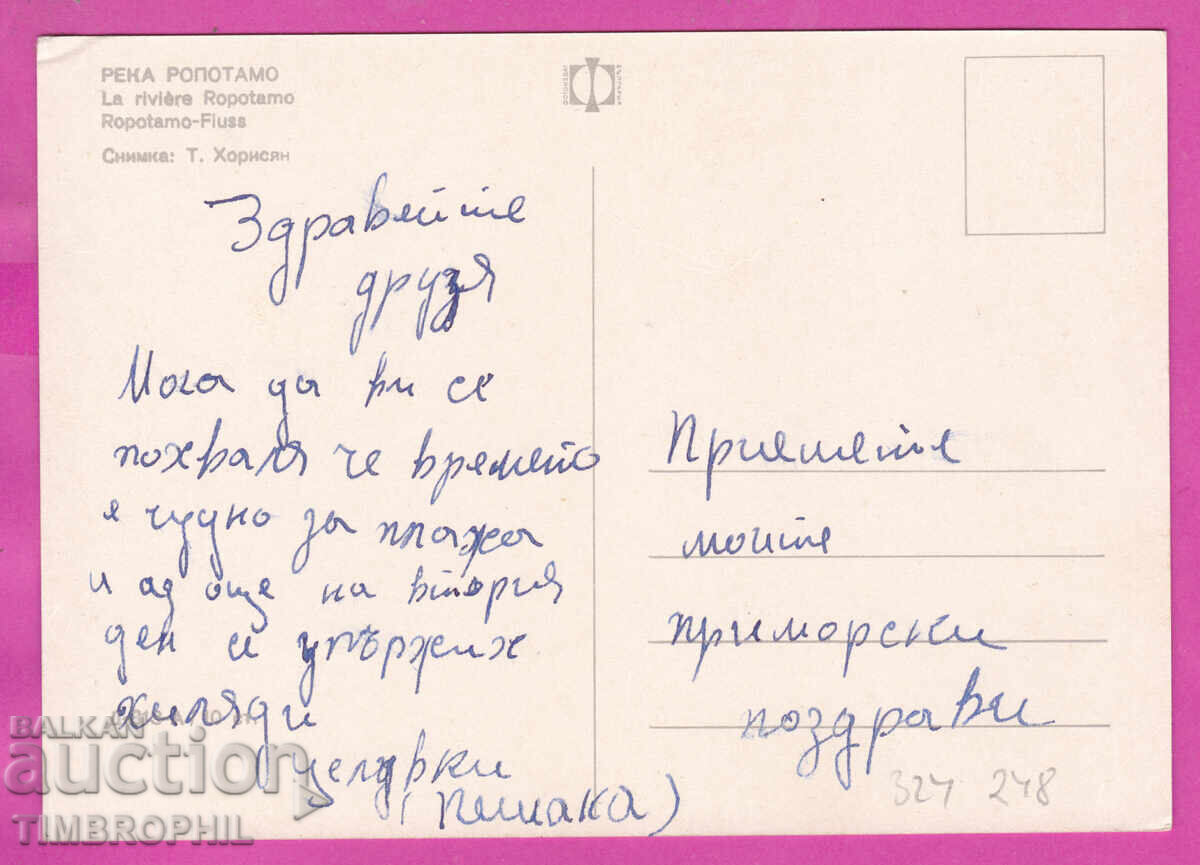 РЕКА РОПОТАМО
La rivière Ropotamo
Ropotamo-Fluss
Снимка: Т. Хорисян
Здравейте
друзя
Мога да ви се
похваля че времето
е чудно за плажа
и аз още на втория
ден и
хиляди
целувки
Приемете
моите
приморски
поздрави
324 248
BALKAN
auction
TIMBROPHIL